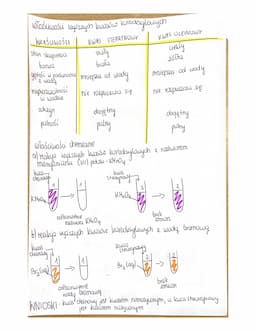 Właściwości wyższych kwasów karboksylowych
WŁAŚCIWOŚCI KWAS STEARYNOWY KWAS OLEINOWY
stan skupienia stały ciekły
barwa biała żółta
gęstość w porównaniu z wodą mniejsza od wody mniejsza od wody
rozpuszczalność w wodzie nie rozpuszcza się nie rozpuszcza się
zapach
palność palny palny
Właściwości chemiczne
a) reakcja wyższych kwasów karboksylowych z
manganianem (VII) potasu - KMnO₄
kwas
KMnO₄
odbarwienie
roztworu KMnO₄
kwas stearynowy
KMnO₄
brak
zmian
b) reakcja wyższych kwasów karboksylowych z wodą bromową
kwas
Br₂(aq)
odbarwienie
wody bromowej
kwas stearynowy
Br₂(aq)
brak
zmian
WNIOSKI: kwas oleinowy jest kwasem nienasyconym, a kwas stearynowy
jest kwasem nasyconym